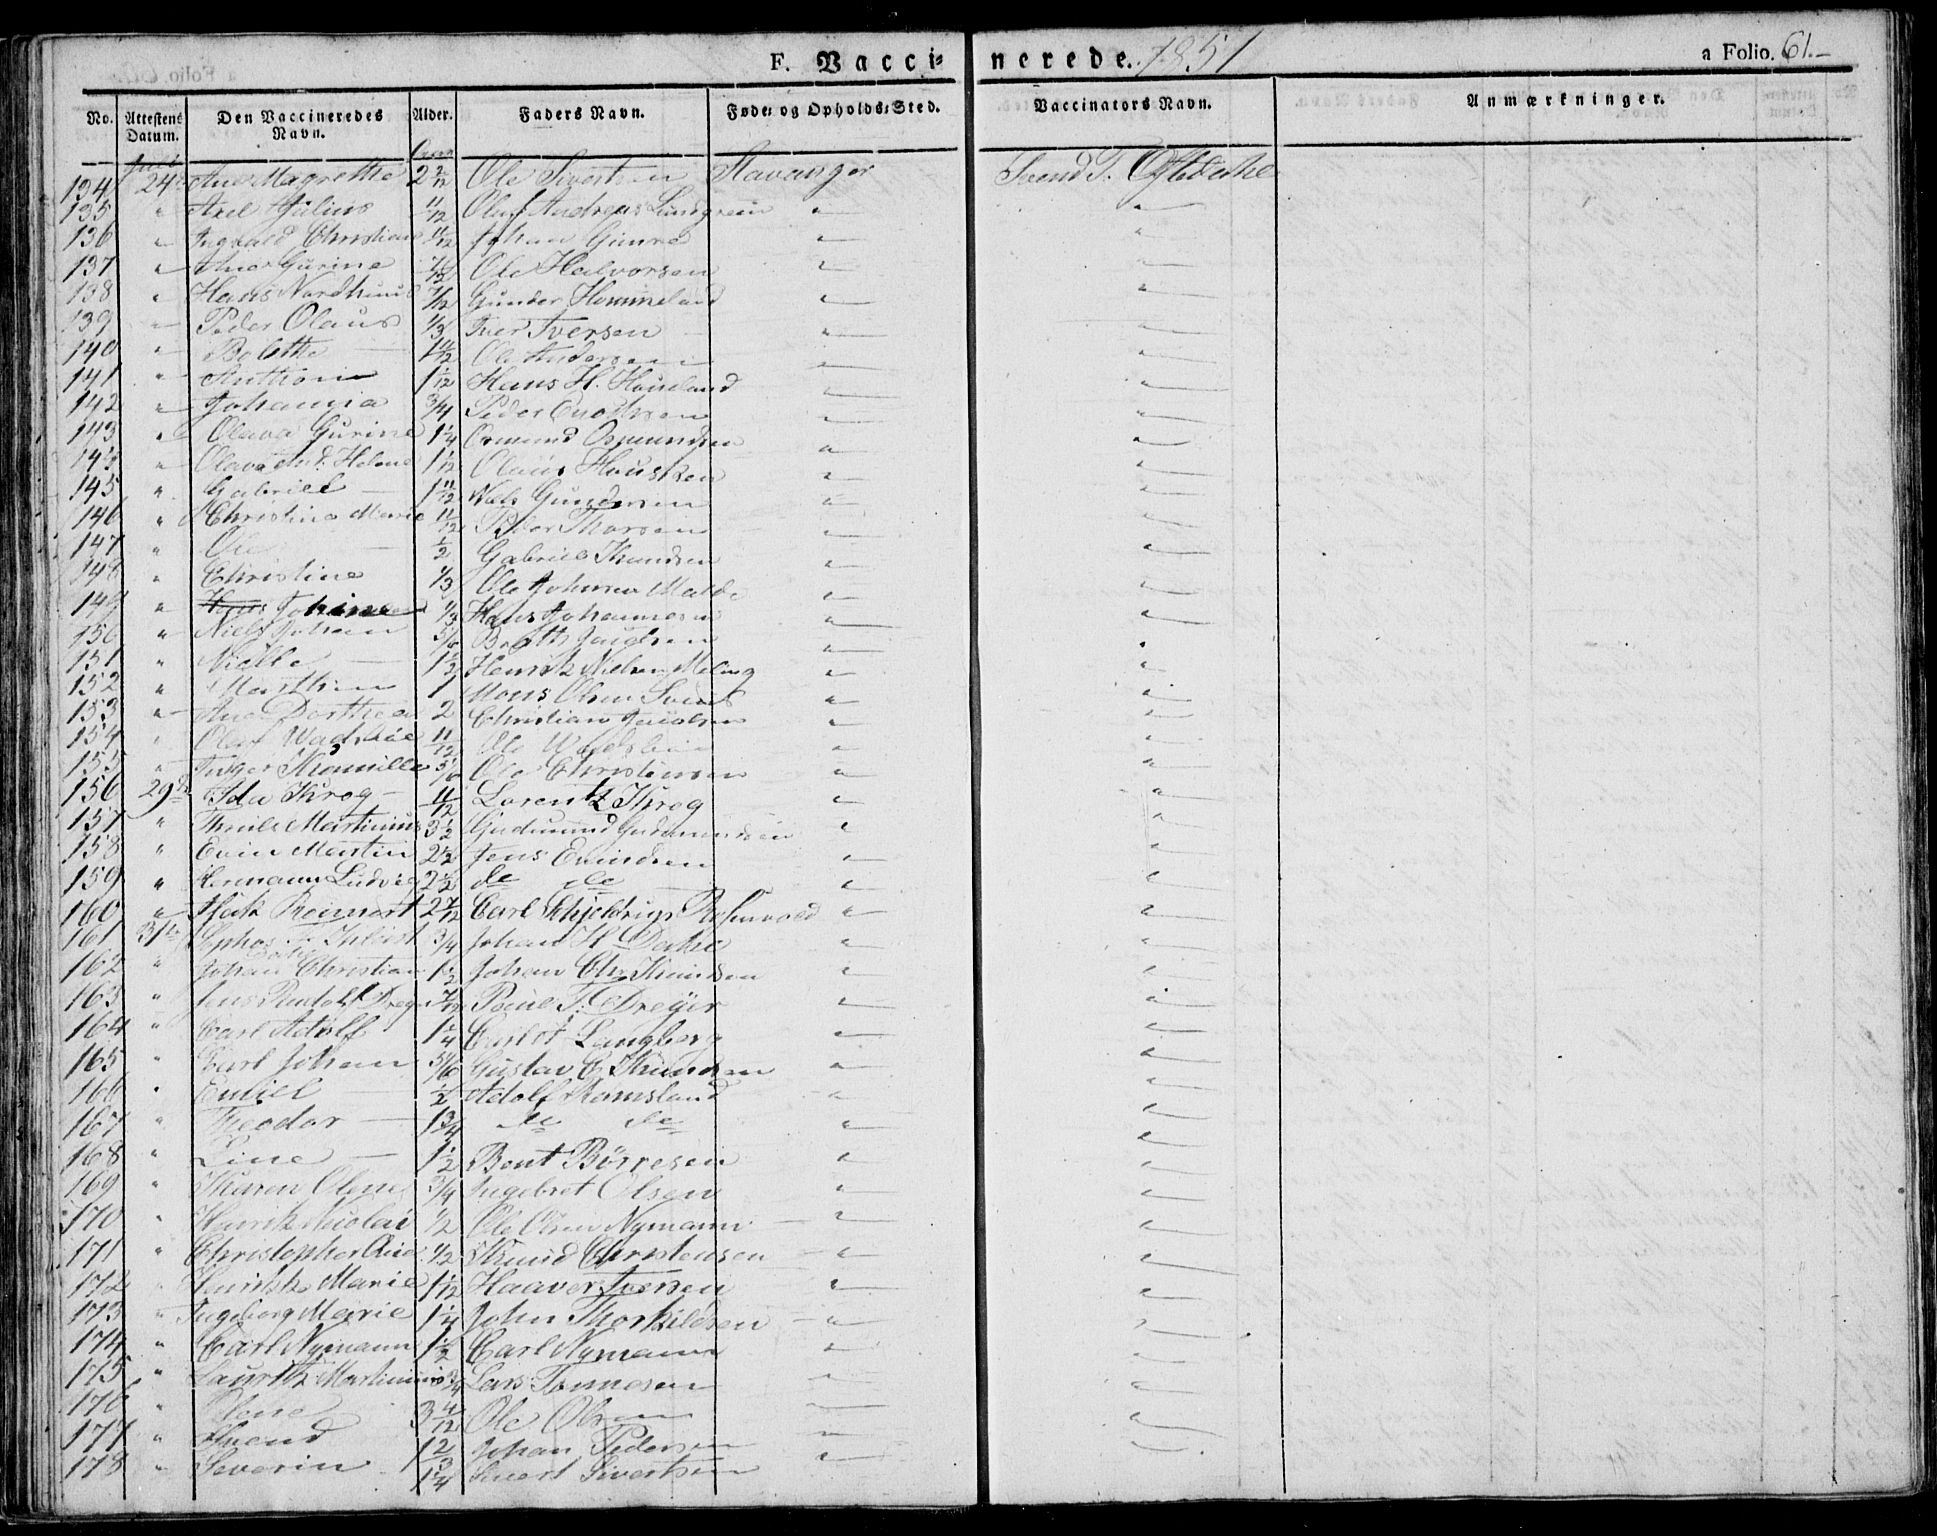 F. Vaccinerede. 1851 a Folio. 61.-
No. Attestens Datum. Den Vaccineredes Navn. Alder. Faders Navn. Føde- og Opholds-Sted. Vaccinators Navn. Anmærkninger.
134 24 Ane Magrethe 2 2/12 Ole Sivertsen Stavanger Svend T.
135 " Axel Julius 11/12 Oluf Andreas Lundgreen " "
136 " Ingvald Christian 11/12 Johan Gimre " "
137 " Ane Gurine Ole Halvorsen " "
138 " Hans Nordhuus 7/12 Gunder Hommeland " "
139 " Peder Olaus 1/3 Iver Iversen " "
140 " Bolette Ole Andersen " "
141 " Anthoni 1 1/12 Hans H. Houeland " "
142 " Johanna 3/4 Peder Enochsen " "
143 " Olava Gurine 1 1/4 Osmund Osmundsen " "
144 " Olava And. Helene 1 1/12 Olaus Hausken " "
145 " Gabriel 1 11/12 Niels Gundersen " "
146 " Christine Marie 11/12 Peder Thorsen " "
147 " Ole 1/2 Gabriel Knudsen " "
148 " Christine 1/3 Ole Johnsen Malde " "
149 " Hans Johannesen " "
150 " Niels Johan 5/6 " "
151 " 1 1/2 Henrik Nielsen Meling " "
152 " Marthin 1 Mons Olsen " "
153 " Ane Dorthea 2 Christian Jacobsen " "
154 " Oluf 11/12 Ole " "
155 " Inger Thomille 5/6 Ole Christensen " "
156 29 Ida Krog 11/12 Lorentz Krog " "
157 " Martinius 3 1/2 Gudmund Gudmundsen " "
158 " Evin Martin 2 1/2 Jens Evindsen " "
159 " Hermann Ludvig 2 1/2 do do " "
160 " Reinert 2 7/12 Carl Rosenvold " "
161 31 3/4 Johan H. Dahl " "
162 " Johan Christian 1 1/2 Johan Chr. Knudsen " "
163 " Jens Rudolf Dreyer 7/12 Poul T. Dreyer " "
164 " Carl Adolf 1 1/4 Langberg " "
165 " Carl Johan 5/6 Gustav C. Knudsen " "
166 " Emiel 1/2 Adolf Ramsland " "
167 " Theodor 1 3/4 do do " "
168 " Line 1 1/2 Bent Börresen " "
169 " Karen Olene 3/4 Ingebret Olsen " "
170 " Henrik Nicolai 1/2 Ole Olsen Nymann " "
171 " Christopher 1/2 Knud Christensen " "
172 " Marie 1 1/12 Haaver Iversen " "
173 " Ingeborg Marie 1 1/4 John Thorkildsen " "
174 " Carl Nymann 1 1/2 Carl Nymann " "
175 " Lauritz Martinius 3/4 Lars Tønnesen " "
176 " 3 4/12 Ole Olsen " "
177 " Svend 1 2/3 Johan Pedersen " "
178 " Severin 1 1/4 Sivert Sivertsen "